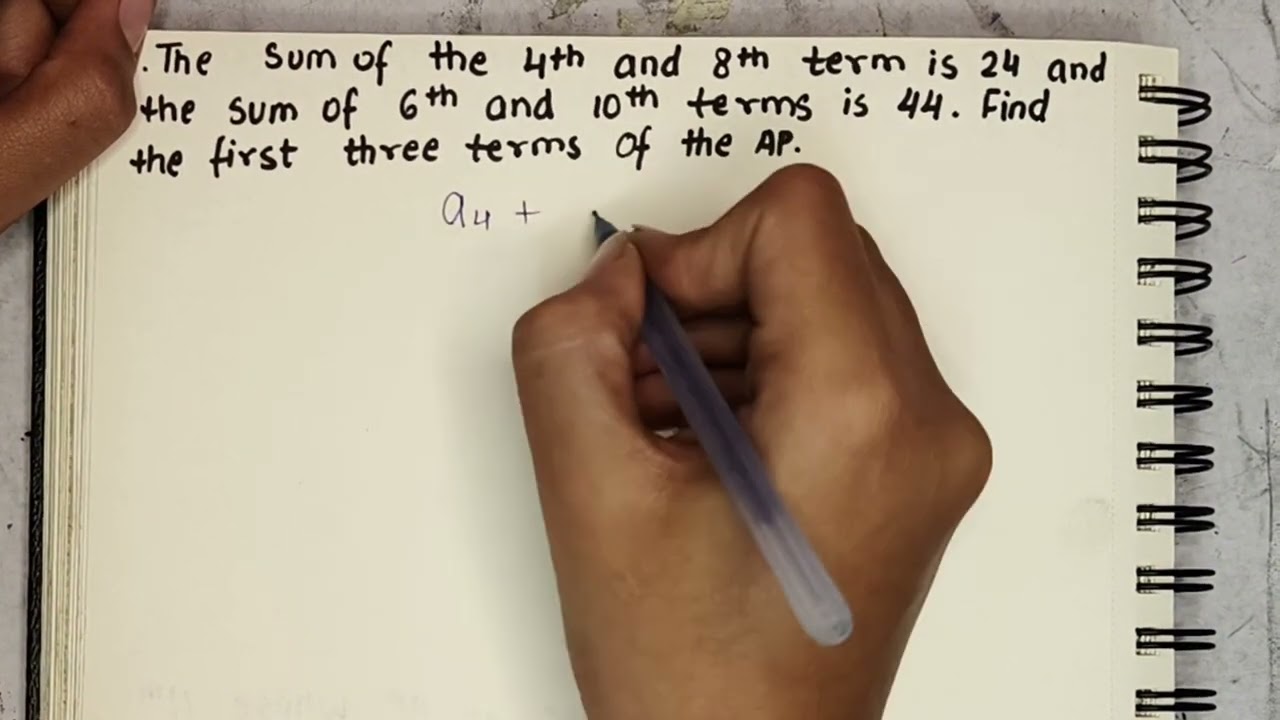 . The sum of the 4th and 8th term is 24 and
the sum of 6th and 10th terms is 44. Find
the first three terms of the AP.
a4 +